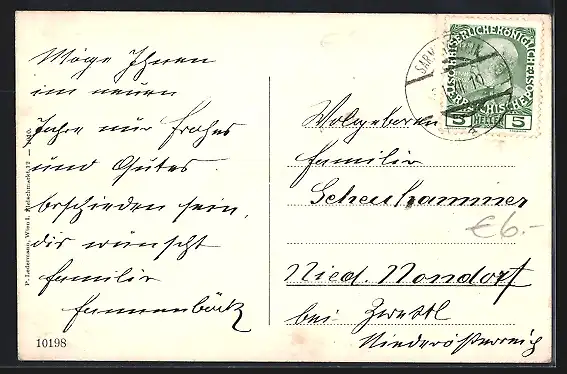 Möge Ihnen
im neuen
Jahre nur Frohes
und Gutes
beschieden sein,
dies wünscht
Familie
P. Ledermann, Wien I., Fleischmarkt 12
10198
KAISERLICHE KÖNIGLICHE ÖSTERREICHISCHE
5 HELLER 5
Wolgeboren
Familie
Scheuhammer
€ 6.-
Nied. Nondorf
bei Zwettl
Niederösterreich